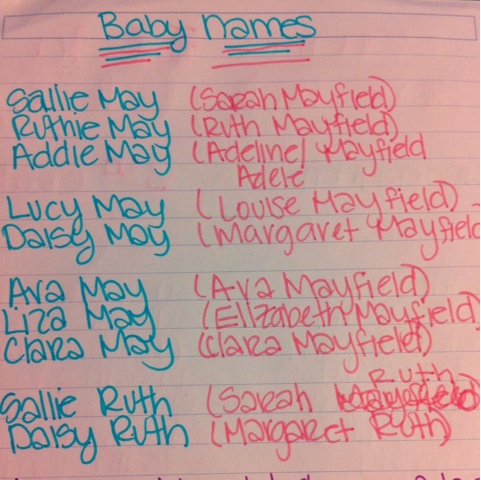 Baby names
Sallie May (Sarah Mayfield)
Ruthie May (Ruth Mayfield)
Addie May (Adeline/ Mayfield
Adele
Lucy May (Louise Mayfield)
Daisy May (Margaret Mayfield
Ava May (Ava Mayfield)
Liza May (Elizabeth Mayfield)
Clara May (Clara Mayfield)
Ruth
Sallie Ruth (Sarah Mayfield)
Daisy Ruth (Margaret Ruth)